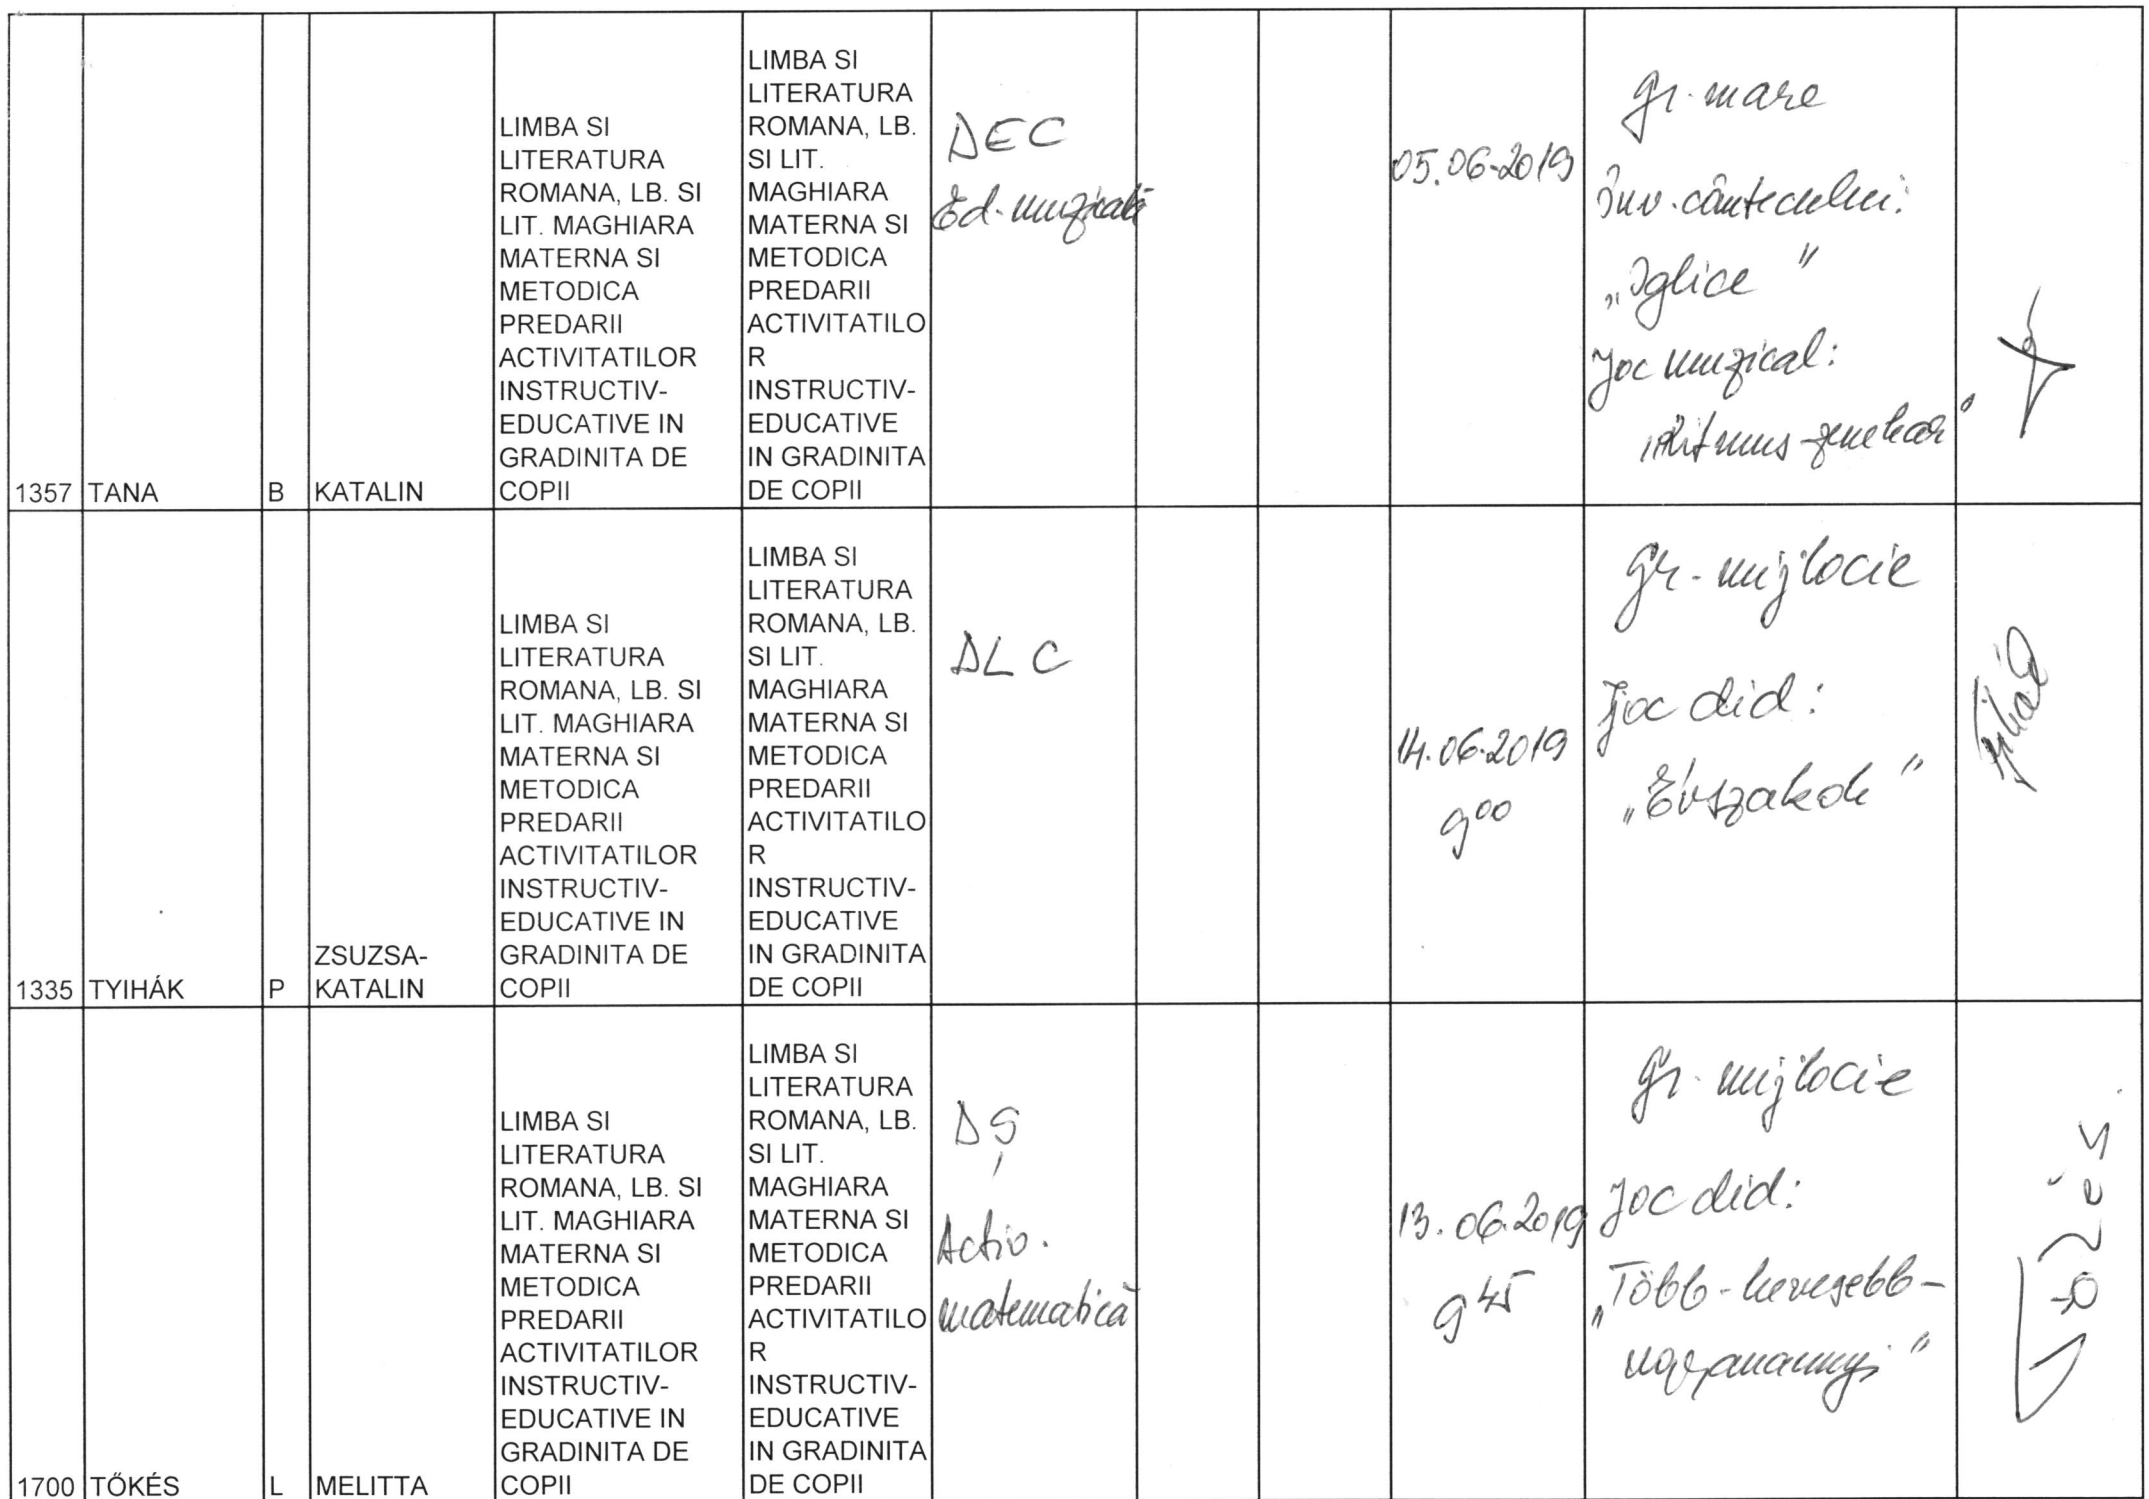 LIMBA SI
LITERATURA
ROMANA, LB. SI
LIT. MAGHIARA
MATERNA SI
METODICA
PREDARII
ACTIVITATILOR
INSTRUCTIV-
EDUCATIVE IN
GRADINITA DE
COPII
LIMBA SI
LITERATURA
ROMANA, LB.
SI LIT.
MAGHIARA
MATERNA SI
METODICA
PREDARII
ACTIVITATILO
R
INSTRUCTIV-
EDUCATIVE
IN GRADINITA
DE COPII
DEC
Ed. muzicală
05.06.2019
gr. mare
Înv. cântecului:
„Iglice"
Joc muzical:
„Ritmus-zenekar"
1357 TANA B KATALIN
LIMBA SI
LITERATURA
ROMANA, LB. SI
LIT. MAGHIARA
MATERNA SI
METODICA
PREDARII
ACTIVITATILOR
INSTRUCTIV-
EDUCATIVE IN
GRADINITA DE
COPII
LIMBA SI
LITERATURA
ROMANA, LB.
SI LIT.
MAGHIARA
MATERNA SI
METODICA
PREDARII
ACTIVITATILO
R
INSTRUCTIV-
EDUCATIVE
IN GRADINITA
DE COPII
DLC
14.06.2019
9⁰⁰
gr. mijlocie
Joc did:
„Évszakok"
1335 TYIHÁK P ZSUZSA-
KATALIN
LIMBA SI
LITERATURA
ROMANA, LB. SI
LIT. MAGHIARA
MATERNA SI
METODICA
PREDARII
ACTIVITATILOR
INSTRUCTIV-
EDUCATIVE IN
GRADINITA DE
COPII
LIMBA SI
LITERATURA
ROMANA, LB.
SI LIT.
MAGHIARA
MATERNA SI
METODICA
PREDARII
ACTIVITATILO
R
INSTRUCTIV-
EDUCATIVE
IN GRADINITA
DE COPII
DȘ
Activ.
matematică
13.06.2019
9⁴⁵
gr. mijlocie
Joc did:
„Több-kevesebb-
ugyanannyi"
Tőkés
1700 TŐKÉS L MELITTA